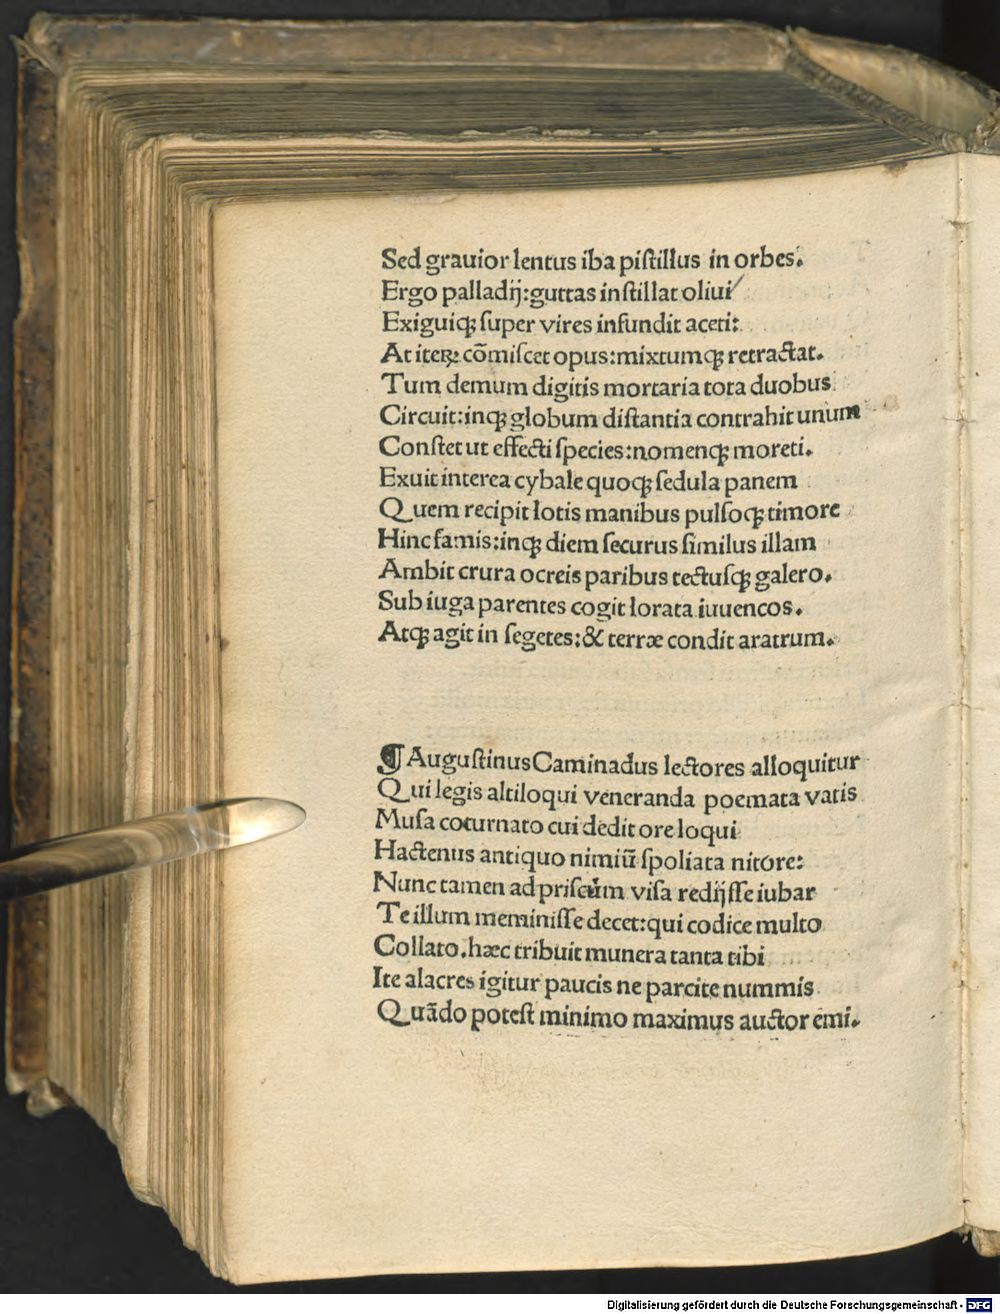 Sed grauior lentus iba piſtillus in orbes.
Ergo palladij:guttas inſtillat oliui
Exiguiqꝫ ſuper vires infundit aceti:
At iteꝝ cōmiſcet opus:mixtumqꝫ retractat.
Tum demum digitis mortaria tota duobus
Circuit:inqꝫ globum diſtantia contrahit unum
Conſtet ut effecti ſpecies:nomenqꝫ moreti.
Exuit interea cybale quoqꝫ ſedula panem
Quem recipit lotis manibus pulſoqꝫ timore
Hinc famis:inqꝫ diem ſecurus ſimilus illam
Ambit crura ocreis paribus tectuſqꝫ galero.
Sub iuga parentes cogit lorata iuuencos.
Atqꝫ agit in ſegetes:& terræ condit aratrum.
¶ Auguſtinus Caminadus lectores alloquitur
Qui legis altiloqui veneranda poemata vatis
Muſa coturnato cui dedit ore loqui
Hactenus antiquo nimiū ſpoliata nitore:
Nunc tamen ad priſcum viſa redijſſe iubar
Te illum meminiſſe decet:qui codice multo
Collato.hæc tribuit munera tanta tibi
Ite alacres igitur paucis ne parcite nummis
Quādo poteſt minimo maximus auctor emi.
Digitalisierung gefördert durch die Deutsche Forschungsgemeinschaft - DFG